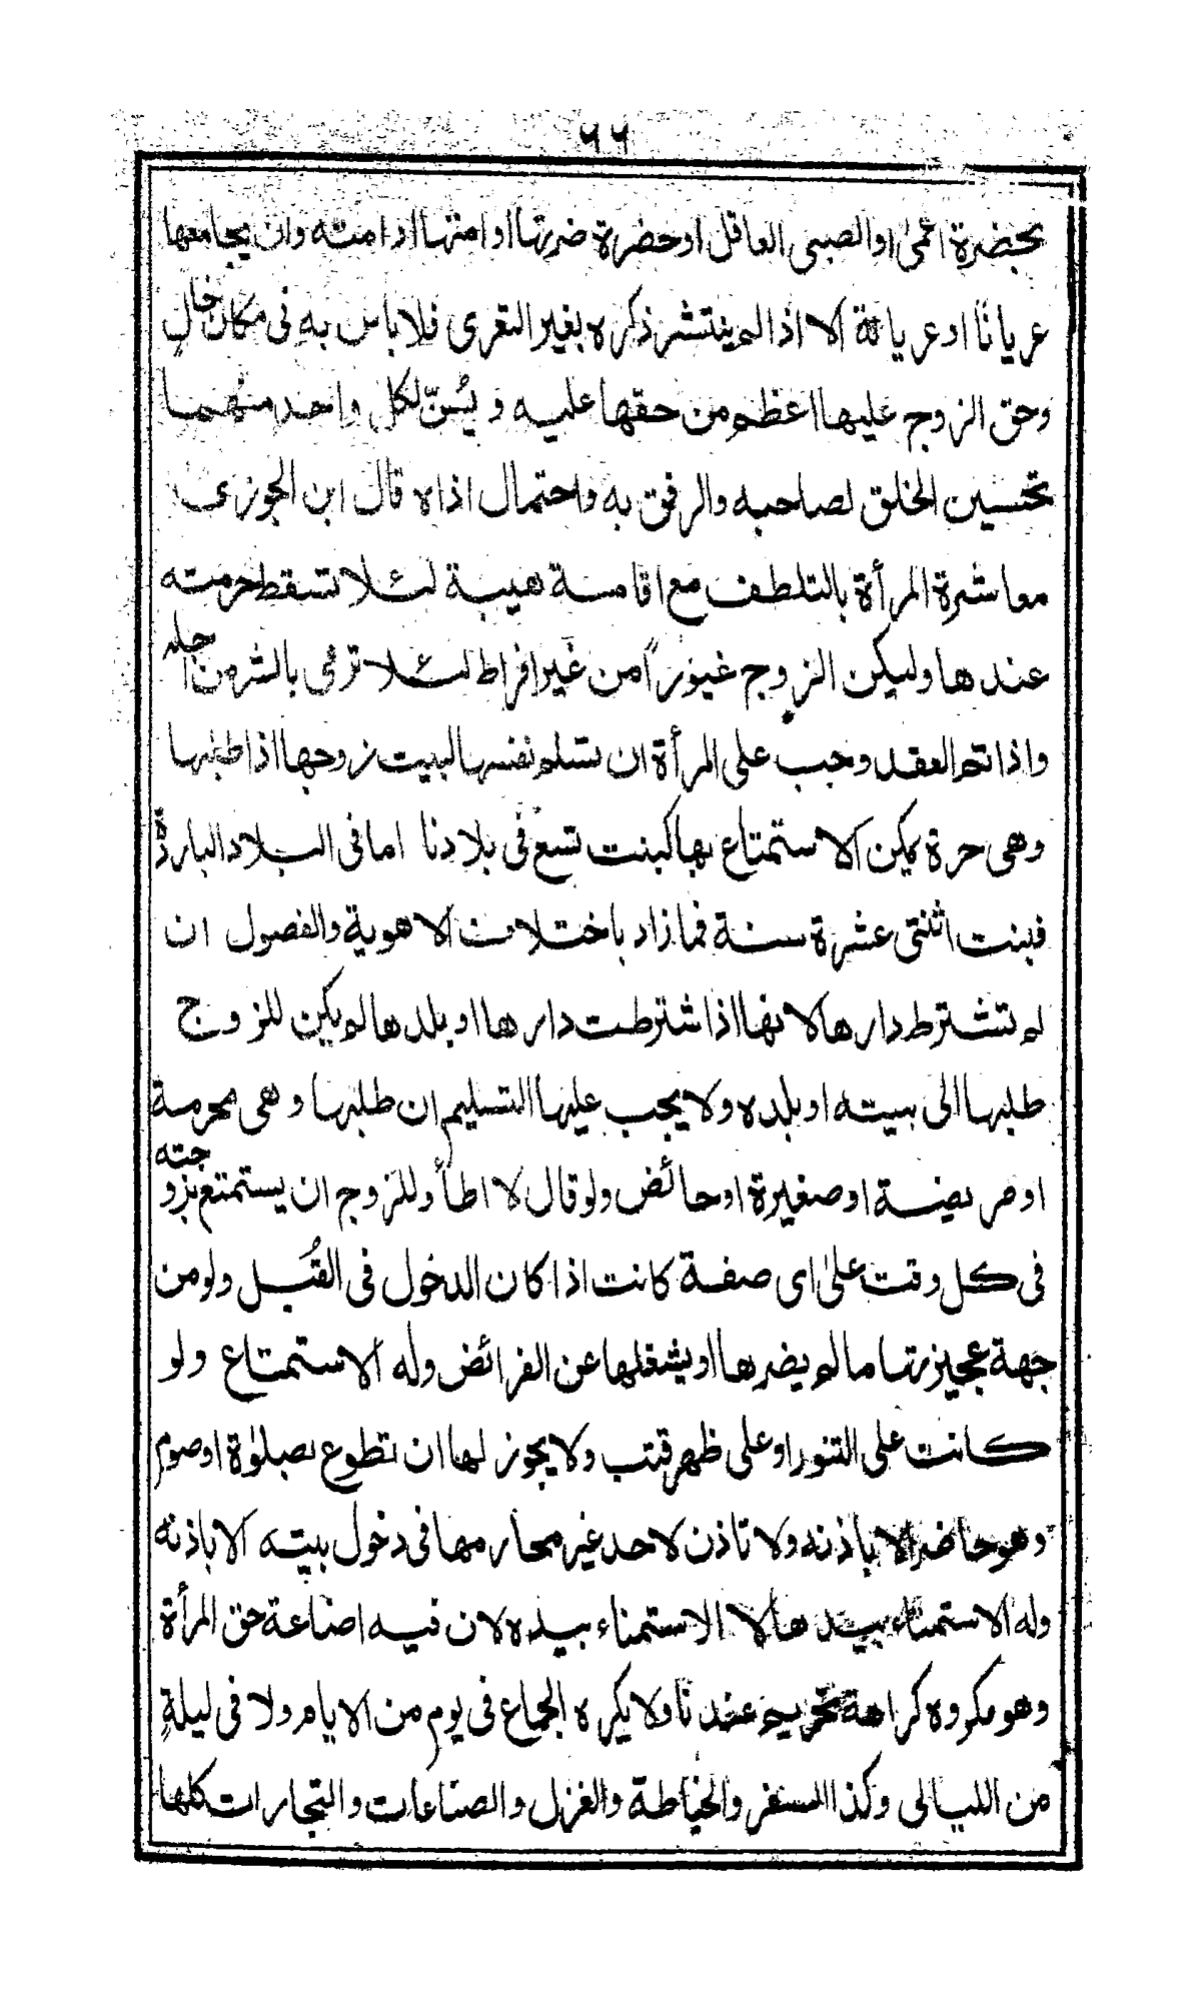 ٦٦
بحضرة اعمىٰ او الصبى العاقل او حضرة ضرتها او امتها او امته وان يجامعها
عريانًا او عريانة الا اذا لم ينتشر ذكره بغير التعرى فلا باس به فى مكان خالٍ
وحق الزوج عليها اعظم من حقها عليه ويُسَنّ لكل واحد منهما
تحسين الخلق لصاحبه والرفق به واحتمال اذاه قال ابن الجوزى
معاشرة المرأة بالتلطف مع اقامة هيبة لئلا تسقط حرمته
عندها وليكن الزوج غيورًا من غير افراط لئلا ترمى بالشر من اجله
واذا تم العقد وجب على المرأة ان تسلم نفسها لبيت زوجها اذا طلبها
وهى حرة يمكن الاستمتاع بها كبنت تسع فى بلادنا اما فى البلاد الباردة
فبنت اثنتى عشرة سنة فما زاد باختلاف الاهوية والفصول ان
لم تشترط دارها لانها اذا شترطت دارها او بلدها لم يكن للزوج
طلبها الى بيته او بلده ولا يجب عليها التسليم ان طلبها وهى محرمة
او مريضة او صغيرة او حائض ولو قال لا اطأ وللزوج ان يستمتع بزوجته
فى كل وقت علىٰ اى صفة كانت اذا كان الدخول فى القُبُل ولو من
جهة عجيزتها ما لم يضرها او يشغلها عن الفرائض وله الاستمتاع ولو
كانت على التنور او على ظهر قتب ولا يجوز لها ان تطوع بصلوٰة او صوم
وهو حاضر الا باذنه ولا تاذن لاحد غير محارمها فى دخول بيته الا باذنه
وله الاستمناء بيدها لا الاستمناء بيده لان فيه اضاعة حق المرأة
وهو مكروه كراهة تحريم عندنا ولا يكره الجماع فى يوم من الايام ولا فى ليلةٍ
من الليالى وكذا السفر والخياطة والغزل والصناعات والتجارات كلها